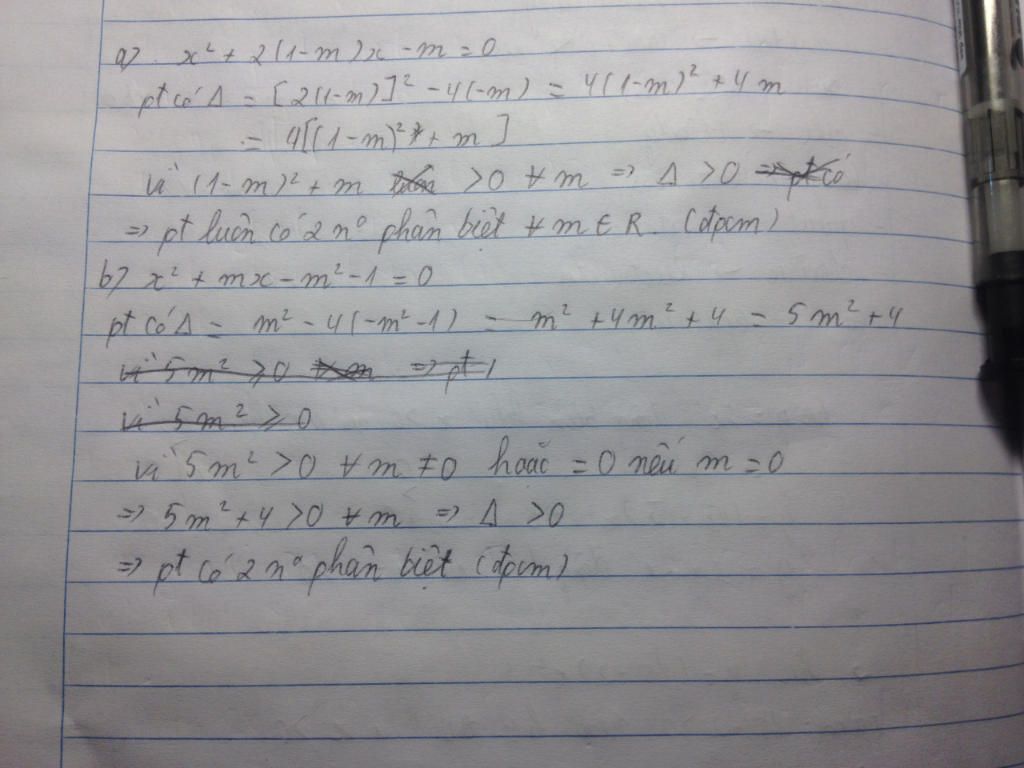 a) x² + 2(1-m)x - m = 0
pt có Δ = [2(1-m)]² - 4(-m) = 4(1-m)² + 4m
= 4[(1-m)² + m]
vì (1-m)² + m luôn > 0 ∀ m => Δ > 0 => pt có
=> pt luôn có 2 n⁰ phân biệt ∀ m ∈ R. (đpcm)
b) x² + mx - m² - 1 = 0
pt có Δ = m² - 4(-m² - 1) = m² + 4m² + 4 = 5m² + 4
vì 5m² ⩾ 0 => pt
vì 5m² ⩾ 0
vì 5m² > 0 ∀ m ≠ 0 hoặc = 0 nếu m = 0
=> 5m² + 4 > 0 ∀ m => Δ > 0
=> pt có 2 n⁰ phân biệt (đpcm)